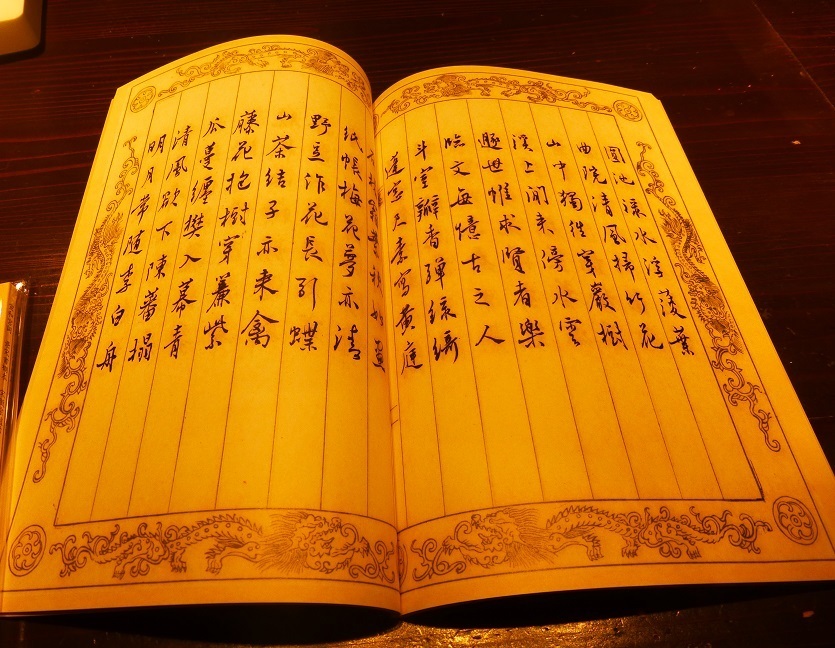 圓池渌水浮菱葉
曲院清風掃竹花
山中獨往穿巖樹
溪上閒来傍水雲
遯世惟求賢者樂
臨文每憶古之人
斗室瓣香彈綠綺
蓬窗尺素寫黃庭
紙帳梅花夢亦清
野豆作花長引蝶
山茶結子亦来禽
藤花抱樹穿簾紫
瓜蔓纏樊入幕青
清風欲下陳蕃榻
明月常随李白舟